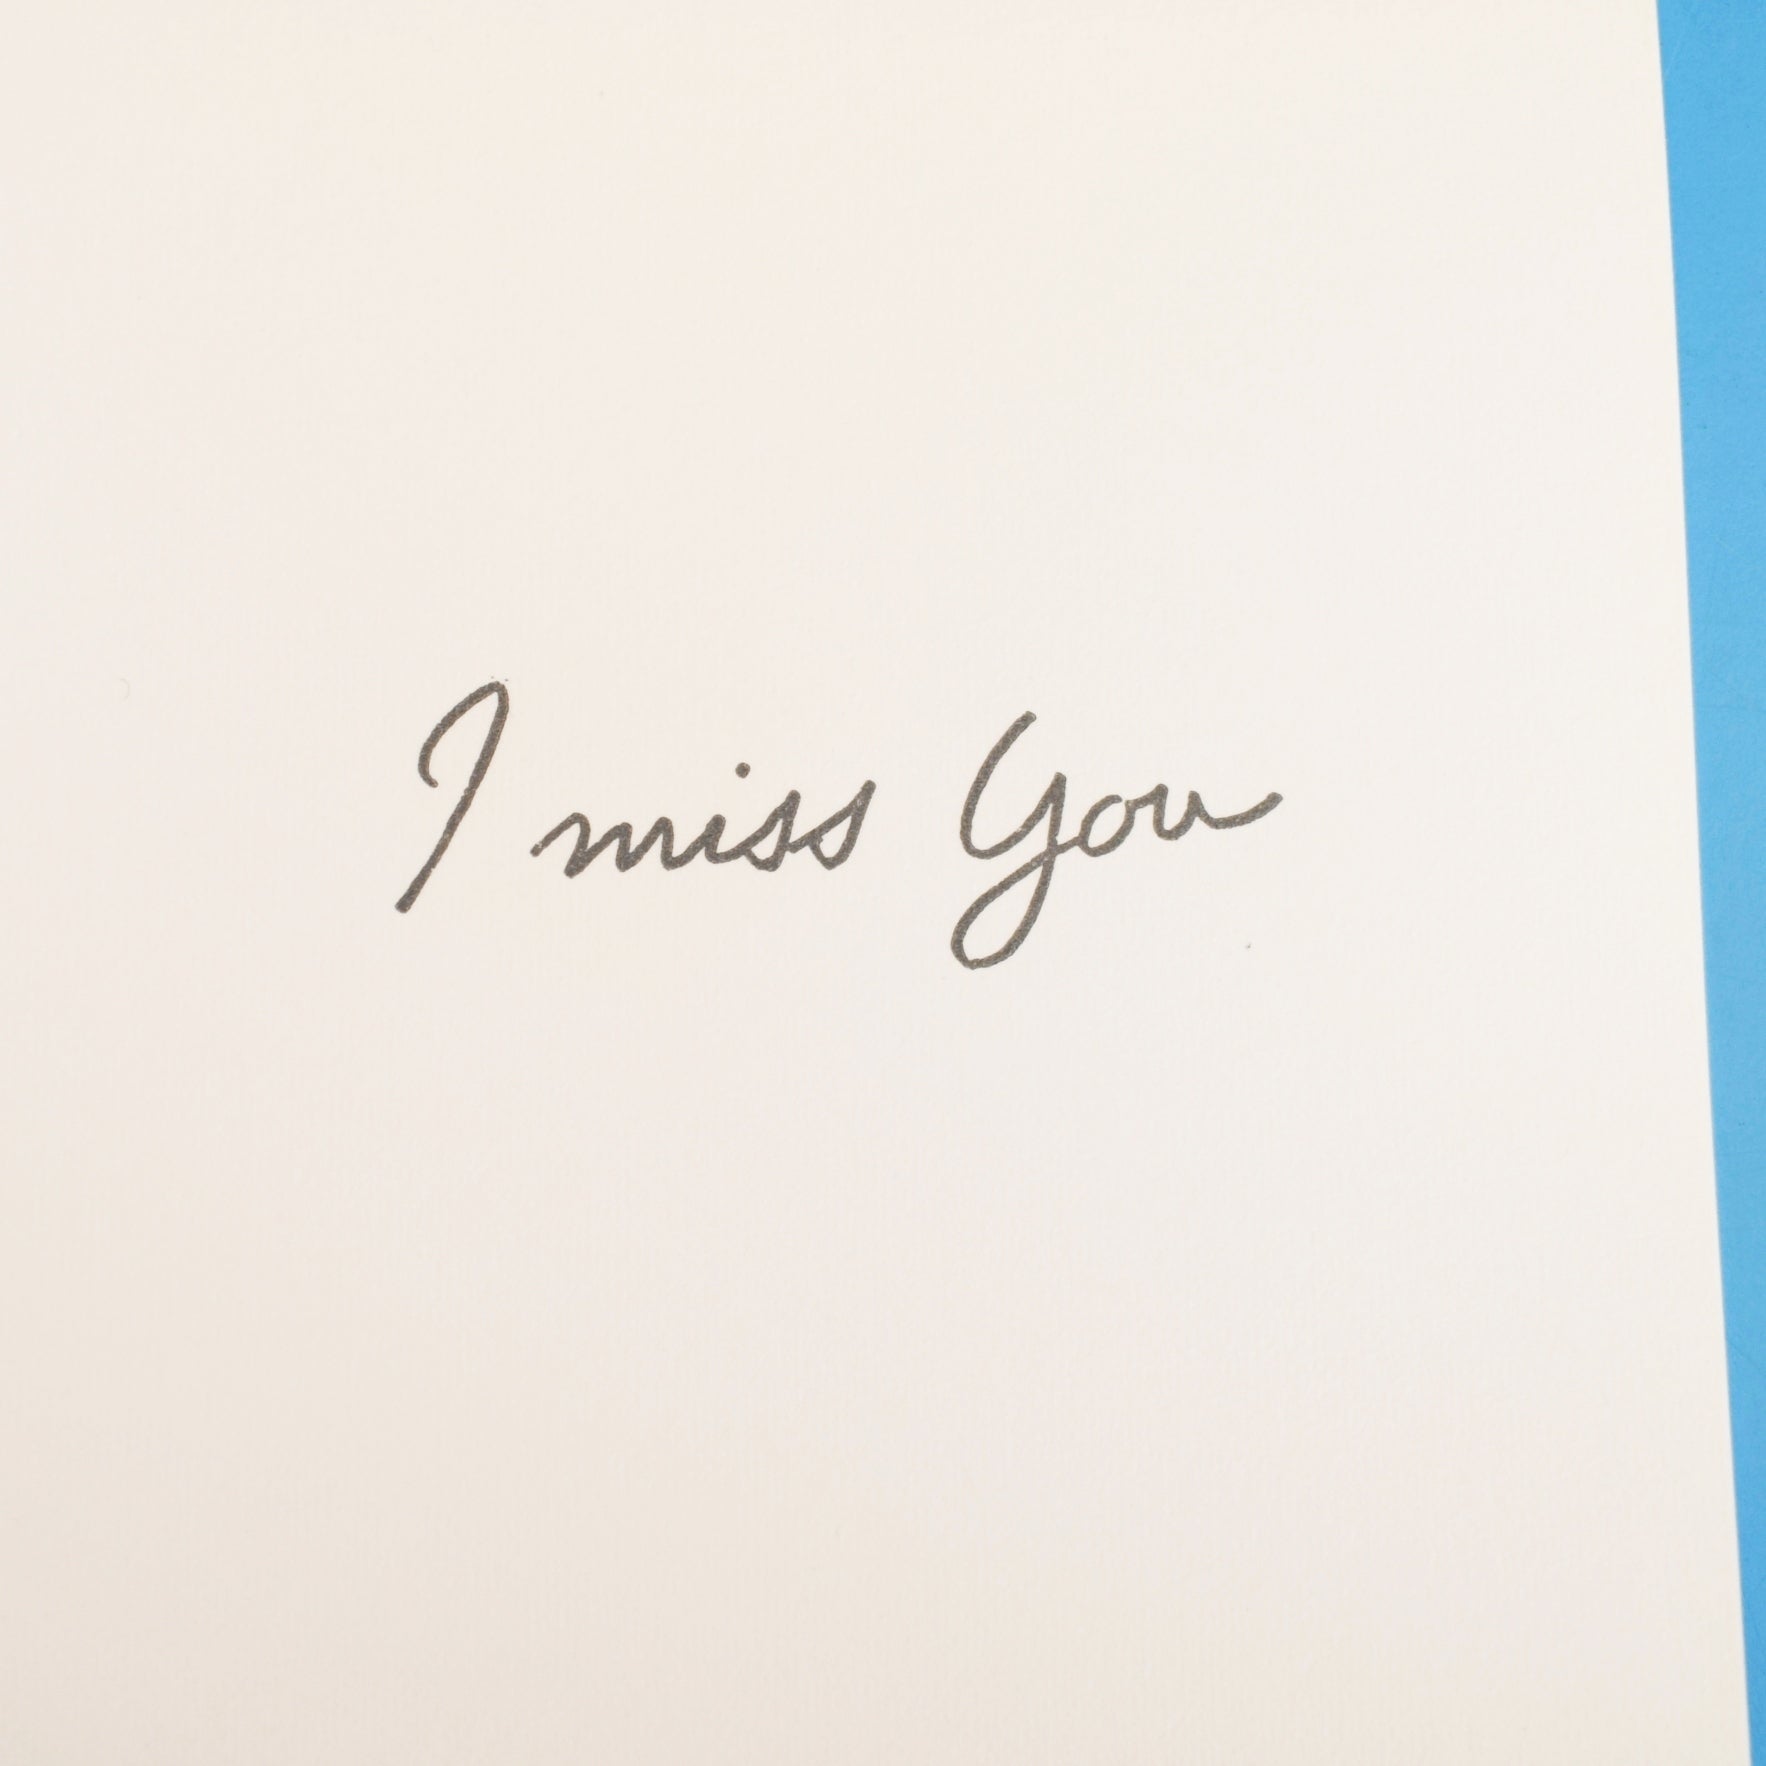 I miss You